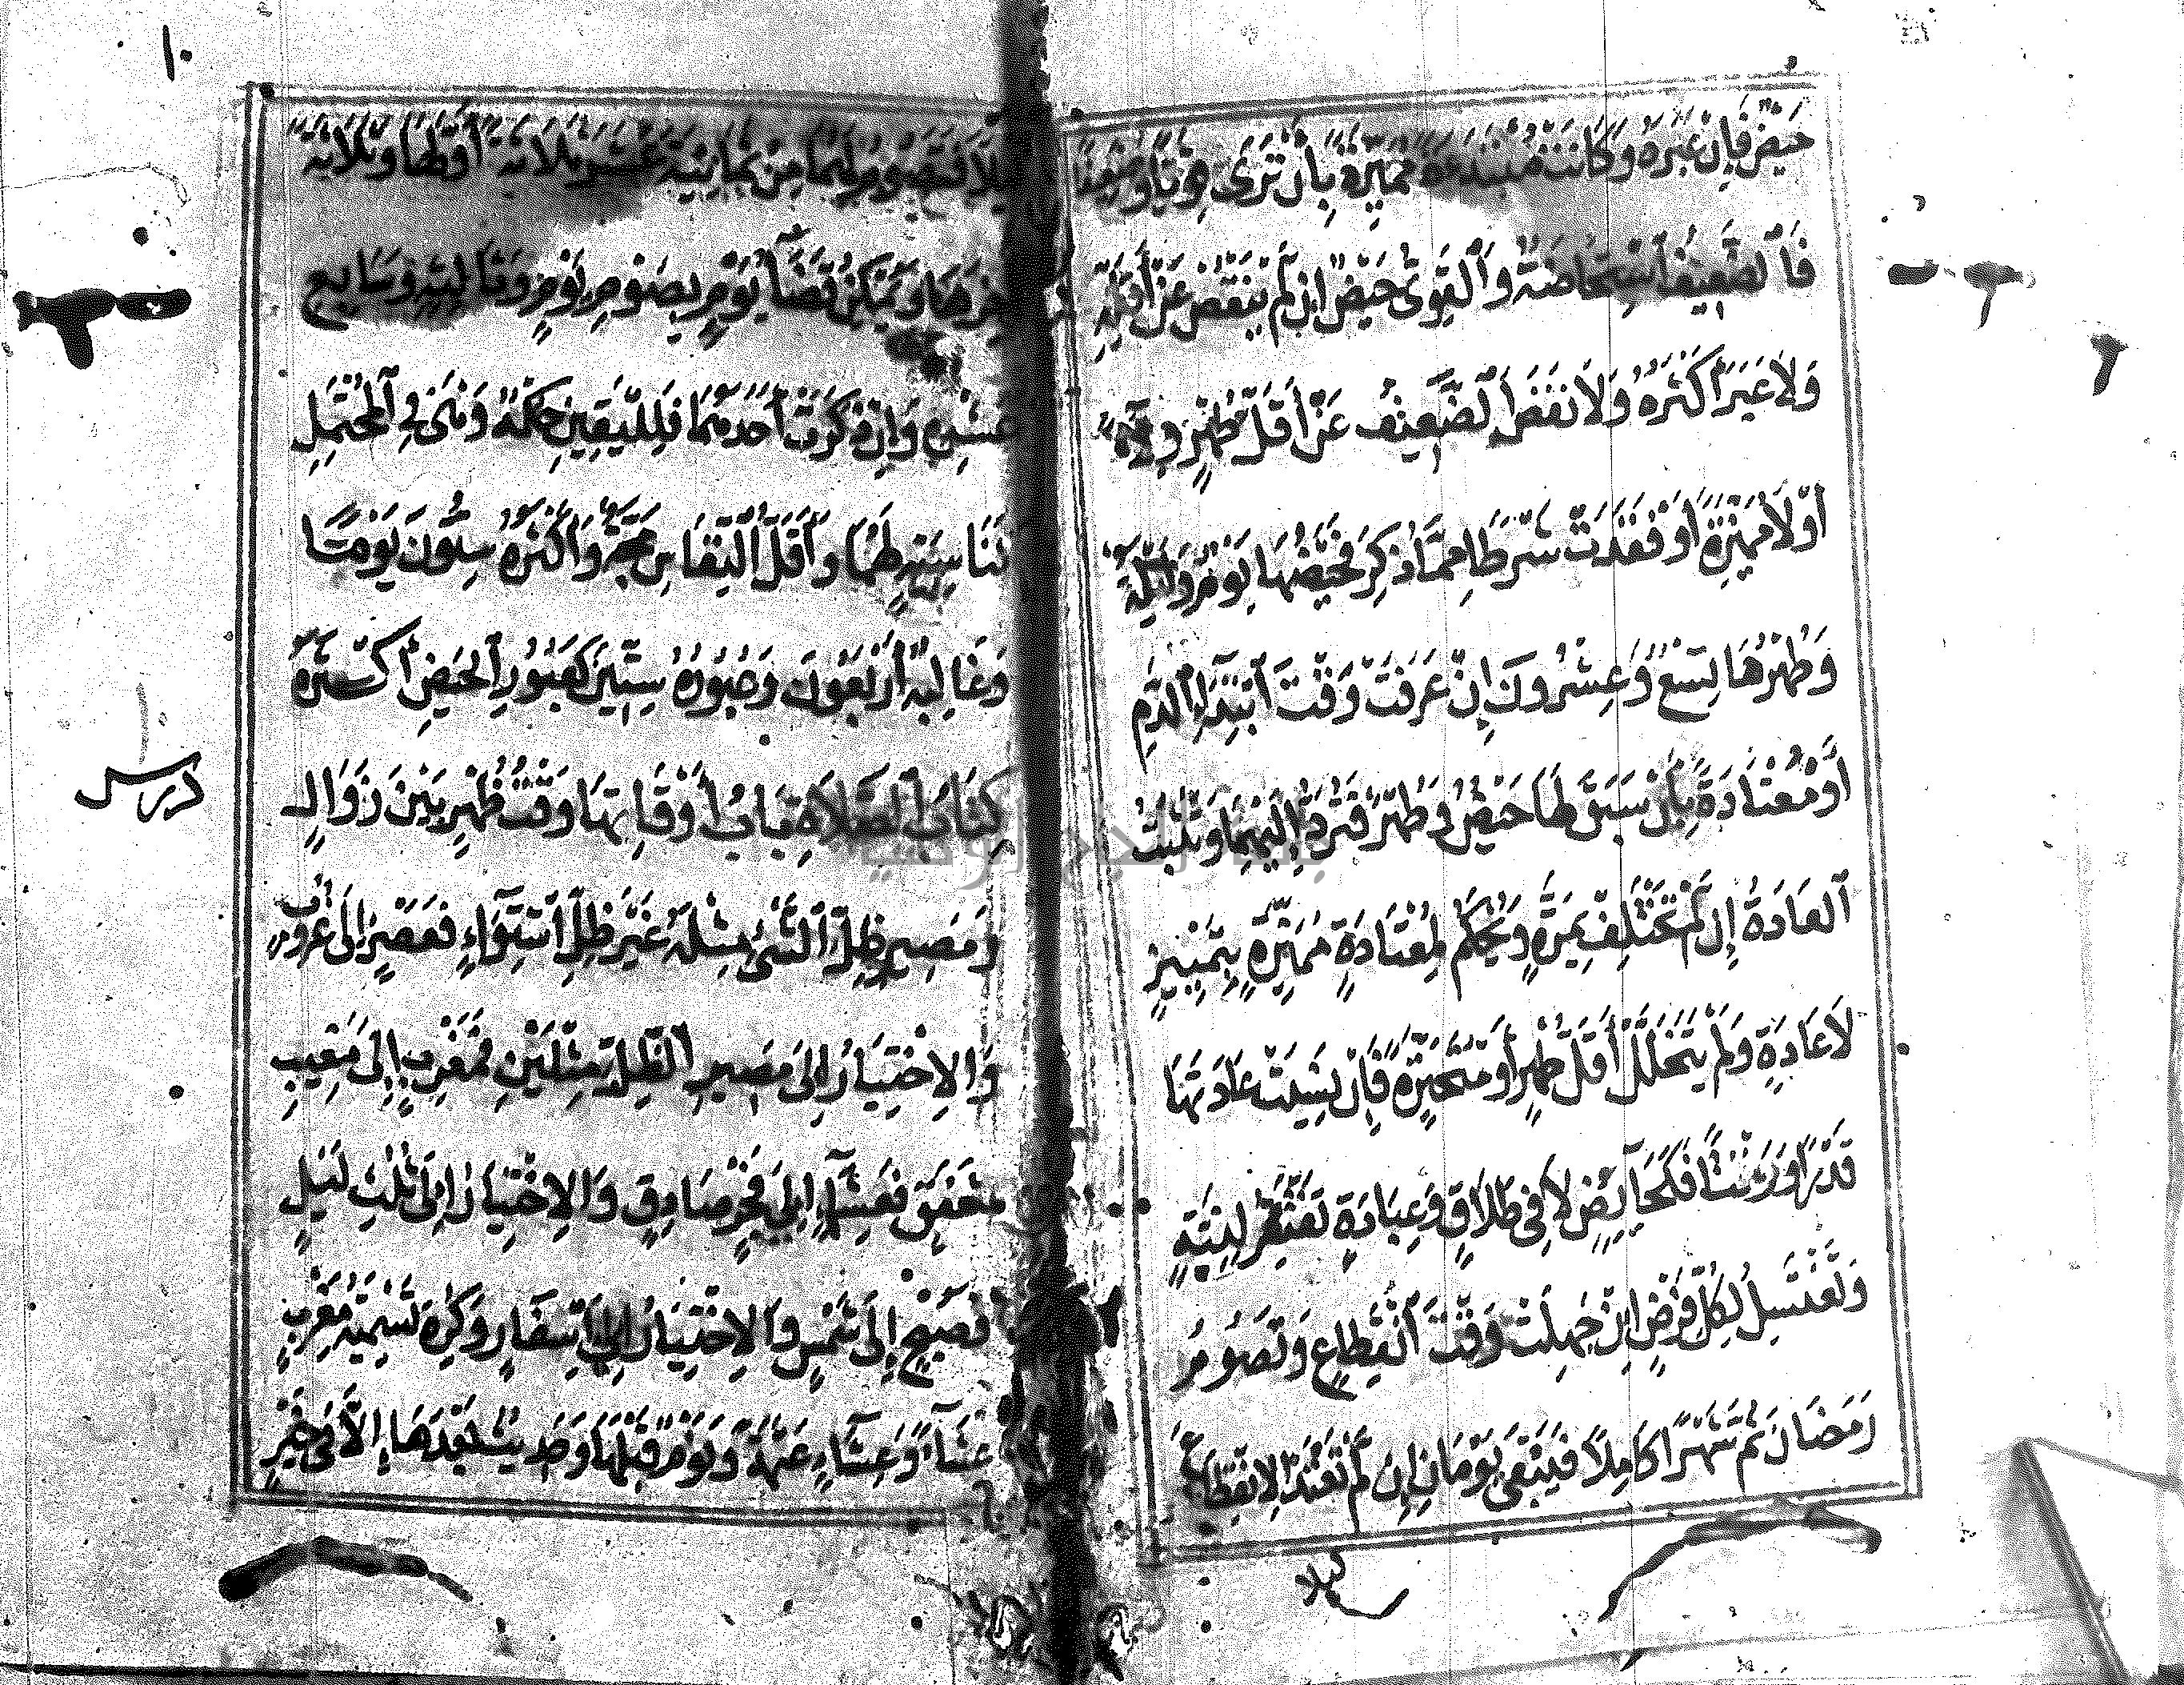 حَيْضٌ فَإِنْ عَبَرَهُ وَكَانَتْ مُبْتَدَأَةً مُمَيِّزَةً بِأَنْ تَرَى قَوِيًّا وَضَعِيفًا
فَالضَّعِيفُ اسْتِحَاضَةٌ وَالْقَوِيُّ حَيْضٌ إِنْ لَمْ يَنْقُصْ عَنْ أَقَلِّهِ
وَلَا عَبَرَ أَكْثَرَهُ وَلَا نَقَصَ الضَّعِيفُ عَنْ أَقَلِّ طُهْرٍ وِلَاءً
أَوْ لَا مُمَيِّزَةً أَوْ فَقَدَتْ شَرْطًا مِمَّا ذُكِرَ فَحَيْضُهَا يَوْمٌ وَلَيْلَةٌ
وَطُهْرُهَا تِسْعٌ وَعِشْرُونَ إِنْ عَرَفَتْ وَقْتَ ابْتِدَاءِ الدَّمِ
أَوْ مُعْتَادَةً بِأَنْ سَبَقَ لَهَا حَيْضٌ وَطُهْرٌ فَتُرَدُّ إِلَيْهِمَا وَتَثْبُتُ
الْعَادَةُ إِنْ لَمْ تَخْتَلِفْ بِمَرَّةٍ وَيُحْكَمُ لِمُعْتَادَةٍ مُمَيِّزَةٍ بِتَمْيِيزٍ
لَا عَادَةٍ وَلَمْ يَتَخَلَّلْ أَقَلُّ طُهْرٍ أَوْ مُتَحَيِّرَةً فَإِنْ نَسِيَتْ عَادَتَهَا
قَدْرًا وَوَقْتًا فَكَحَائِضٍ لَا فِي طَلَاقٍ وَعِبَادَةٍ تَفْتَقِرُ لِنِيَّةٍ
وَتَغْتَسِلُ لِكُلِّ فَرْضٍ إِنْ جَهِلَتْ وَقْتَ انْقِطَاعٍ وَتَصُومُ
رَمَضَانَ ثُمَّ شَهْرًا كَامِلًا فَيَبْقَى يَوْمَانِ إِنْ لَمْ تَعْتَدِ الِانْقِطَاعَ
لَيْلًا
١٠
لَيْلًا فَتَصُومُ لَهُمَا مِنْ ثَمَانِيَةَ عَشَرَ ثَلَاثَةً أَوَّلَهَا وَثَلَاثَةً
آخِرَهَا وَيُمْكِنُ قَضَاءُ يَوْمٍ بِصَوْمِ يَوْمٍ وَثَالِثِهِ وَسَابِعَ
عَشَرِهِ وَإِنْ ذَكَرَتْ أَحَدَهُمَا فَلِلْيَقِينِ حُكْمُهُ وَهِيَ فِي الْمُحْتَمِلِ
كَنَاسِيَةٍ لَهُمَا وَأَقَلُّ النِّفَاسِ مَجَّةٌ وَأَكْثَرُهُ سِتُّونَ يَوْمًا
وَغَالِبُهُ أَرْبَعُونَ وَعُبُورُهُ سِتِّينَ كَعُبُورِ الْحَيْضِ أَكْثَرَهُ
كِتَابُ الصَّلَاةِ بَابُ أَوْقَاتِهَا وَقْتُ ظُهْرٍ بَيْنَ زَوَالٍ
وَمَصِيرِ ظِلِّ الشَّيْءِ مِثْلَهُ غَيْرَ ظِلِّ اسْتِوَاءٍ فَعَصْرٍ إِلَى غُرُوبٍ
وَالِاخْتِيَارُ إِلَى مَصِيرِ الظِّلِّ مِثْلَيْنِ فَمَغْرِبٍ إِلَى مَغِيبِ
شَفَقٍ فَعِشَاءٍ إِلَى فَجْرٍ صَادِقٍ وَالِاخْتِيَارُ إِلَى ثُلُثِ لَيْلٍ
فَصُبْحٍ إِلَى شَمْسٍ وَالِاخْتِيَارُ إِلَى إِسْفَارٍ وَكُرِهَ تَسْمِيَةُ مَغْرِبٍ
عِشَاءً وَعِشَاءٍ عَتَمَةً وَنَوْمٌ قَبْلَهَا وَحَدِيثٌ بَعْدَهَا إِلَّا فِي خَيْرٍ
١٠
درس